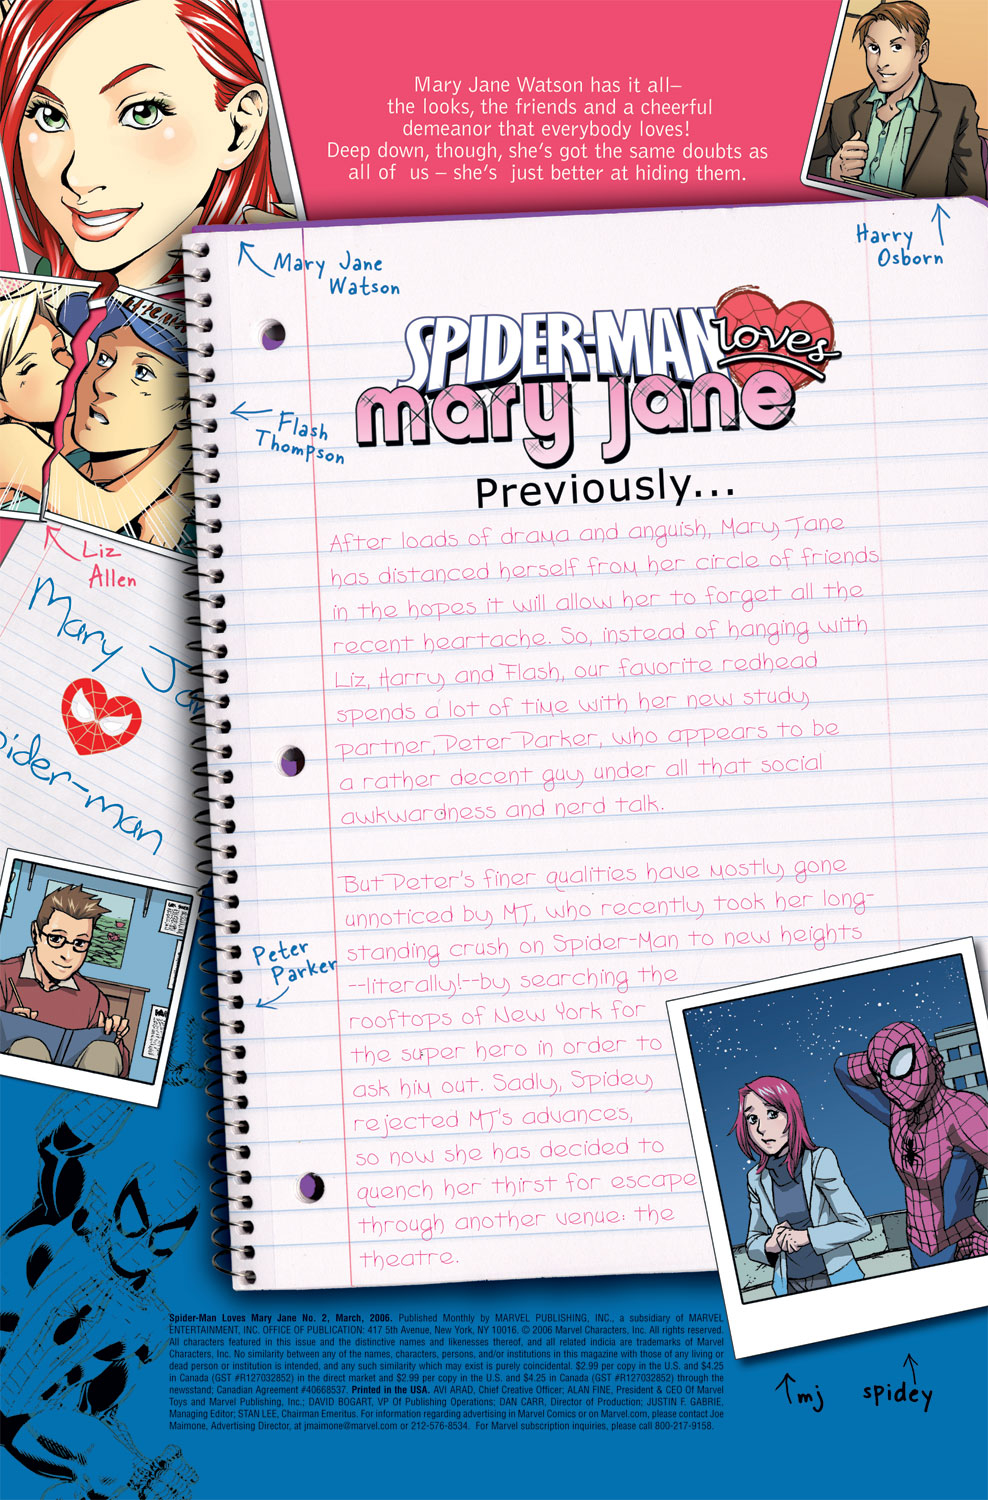 Mary Jane Watson has it all–
the looks, the friends and a cheerful
demeanor that everybody loves!
Deep down, though, she's got the same doubts as
all of us – she's just better at hiding them.
Mary Jane
Watson
Harry
Osborn
SPIDER-MAN loves
mary jane
Flash
Thompson
Previously...
Liz
Allen
After loads of drama and anguish, Mary Jane
has distanced herself from her circle of friends
in the hopes it will allow her to forget all the
recent heartache. So, instead of hanging with
Liz, Harry and Flash, our favorite redhead
spends a lot of time with her new study
partner, Peter Parker, who appears to be
a rather decent guy under all that social
awkwardness and nerd talk.
But Peter's finer qualities have mostly gone
unnoticed by MJ, who recently took her long-
standing crush on Spider-Man to new heights
--literally!--by searching the
rooftops of New York for
the super hero in order to
ask him out. Sadly, Spidey
rejected MJ's advances,
so now she has decided to
quench her thirst for escape
through another venue: the
theatre.
Mary Jan
pider-man
Peter
Parker
mj
spidey
Spider-Man Loves Mary Jane No. 2, March, 2006. Published Monthly by MARVEL PUBLISHING, INC., a subsidiary of MARVEL
ENTERTAINMENT, INC. OFFICE OF PUBLICATION: 417 5th Avenue, New York, NY 10016. © 2006 Marvel Characters, Inc. All rights reserved.
All characters featured in this issue and the distinctive names and likenesses thereof, and all related indicia are trademarks of Marvel
Characters, Inc. No similarity between any of the names, characters, persons, and/or institutions in this magazine with those of any living or
dead person or institution is intended, and any such similarity which may exist is purely coincidental. $2.99 per copy in the U.S. and $4.25
in Canada (GST #R127032852) in the direct market and $2.99 per copy in the U.S. and $4.25 in Canada (GST #R127032852) through the
newsstand; Canadian Agreement #40668537. Printed in the USA. AVI ARAD, Chief Creative Officer; ALAN FINE, President & CEO Of Marvel
Toys and Marvel Publishing, Inc.; DAVID BOGART, VP Of Publishing Operations; DAN CARR, Director of Production; JUSTIN F. GABRIE,
Managing Editor; STAN LEE, Chairman Emeritus. For information regarding advertising in Marvel Comics or on Marvel.com, please contact Joe
Maimone, Advertising Director, at jmaimone@marvel.com or 212-576-8534. For Marvel subscription inquiries, please call 800-217-9158.